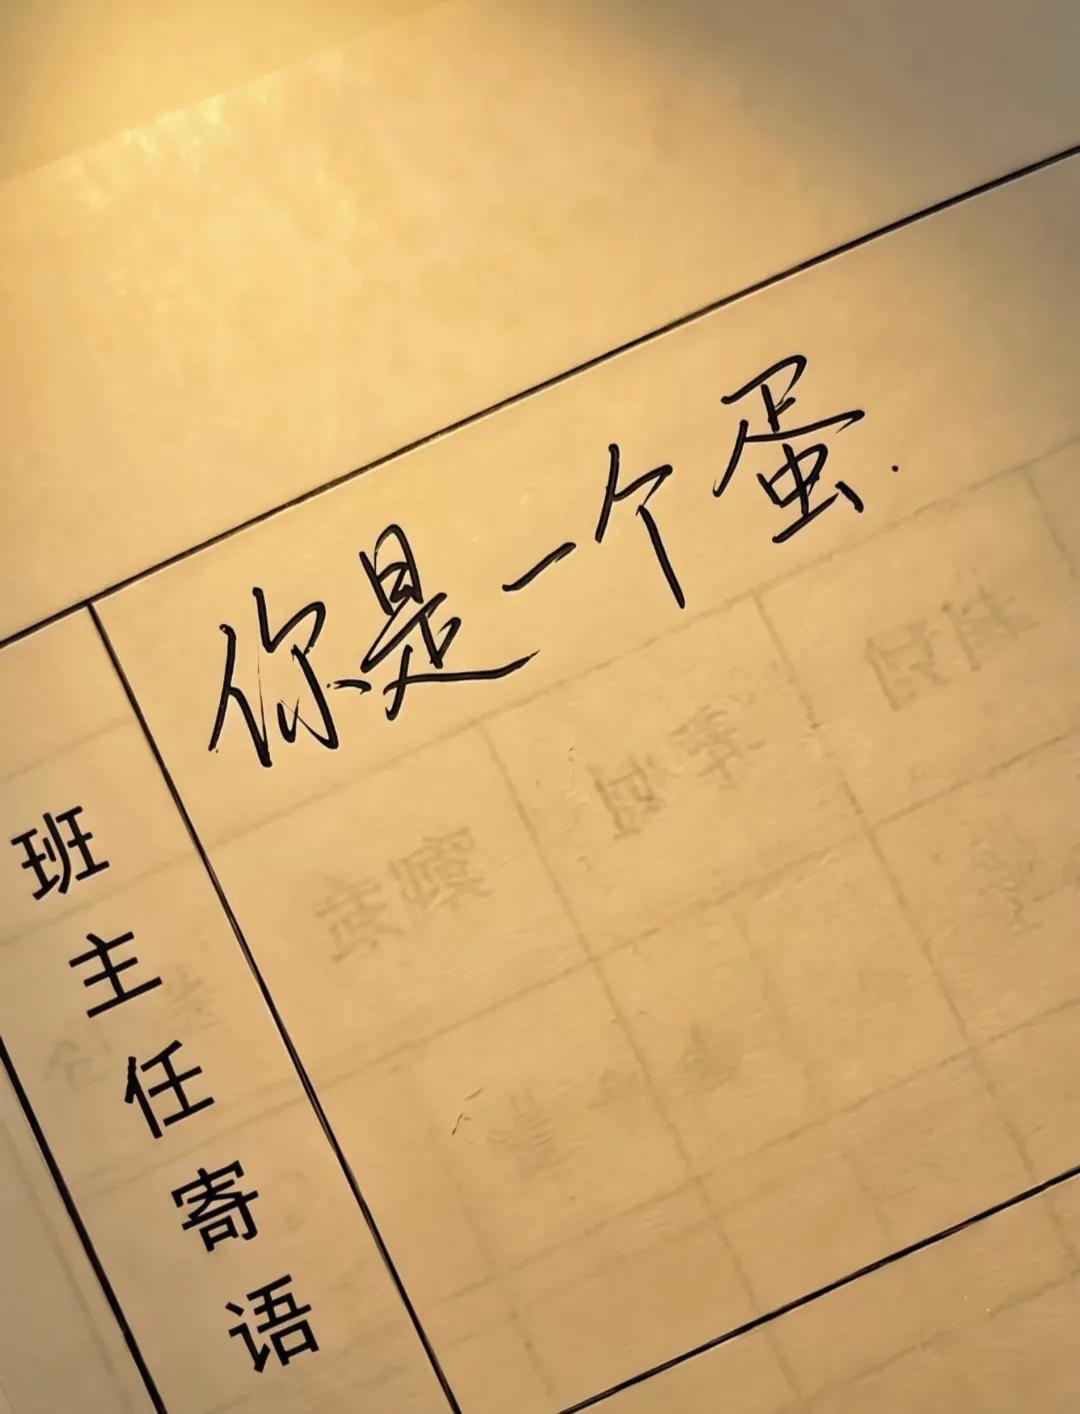 你是一个蛋.
班主任寄语